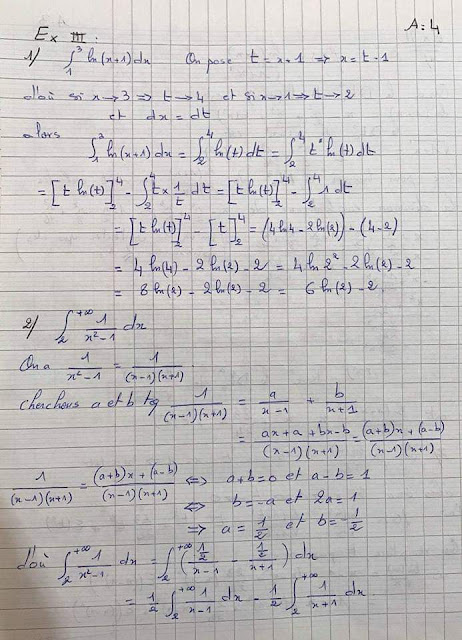 A:4
Ex III:
1) ∫₁³ ln(x+1)dx On pose t = x+1 ⇒ x = t-1
d'où si x→3 ⇒ t→4 et si x→1 ⇒ t→2
et dx = dt
alors
∫₁³ ln(x+1)dx = ∫₂⁴ ln(t)dt = ∫₂⁴ t' ln(t)dt
= [t ln(t)]₂⁴ - ∫₂⁴ t × 1/t dt = [t ln(t)]₂⁴ - ∫₂⁴ 1 dt
= [t ln(t)]₂⁴ - [t]₂⁴ = (4 ln 4 - 2 ln(2)) - (4-2)
= 4 ln(4) - 2 ln(2) - 2 = 4 ln 2² - 2 ln(2) - 2
= 8 ln(2) - 2 ln(2) - 2 = 6 ln(2) - 2
2) ∫₂^{+∞} 1/(x²-1) dx
On a 1/(x²-1) = 1/((x-1)(x+1))
cherchons a et b tq 1/((x-1)(x+1)) = a/(x-1) + b/(x+1)
= (ax+a+bx-b)/((x-1)(x+1)) = ((a+b)x+(a-b))/((x-1)(x+1))
1/((x-1)(x+1)) = ((a+b)x+(a-b))/((x-1)(x+1)) ⇔ a+b=0 et a-b=1
⇔ b=-a et 2a=1
⇒ a = 1/2 et b = -1/2
d'où ∫₂^{+∞} 1/(x²-1) dx = ∫₂^{+∞} ((1/2)/(x-1) - (1/2)/(x+1)) dx
= 1/2 ∫₂^{+∞} 1/(x-1) dx - 1/2 ∫₂^{+∞} 1/(x+1) dx